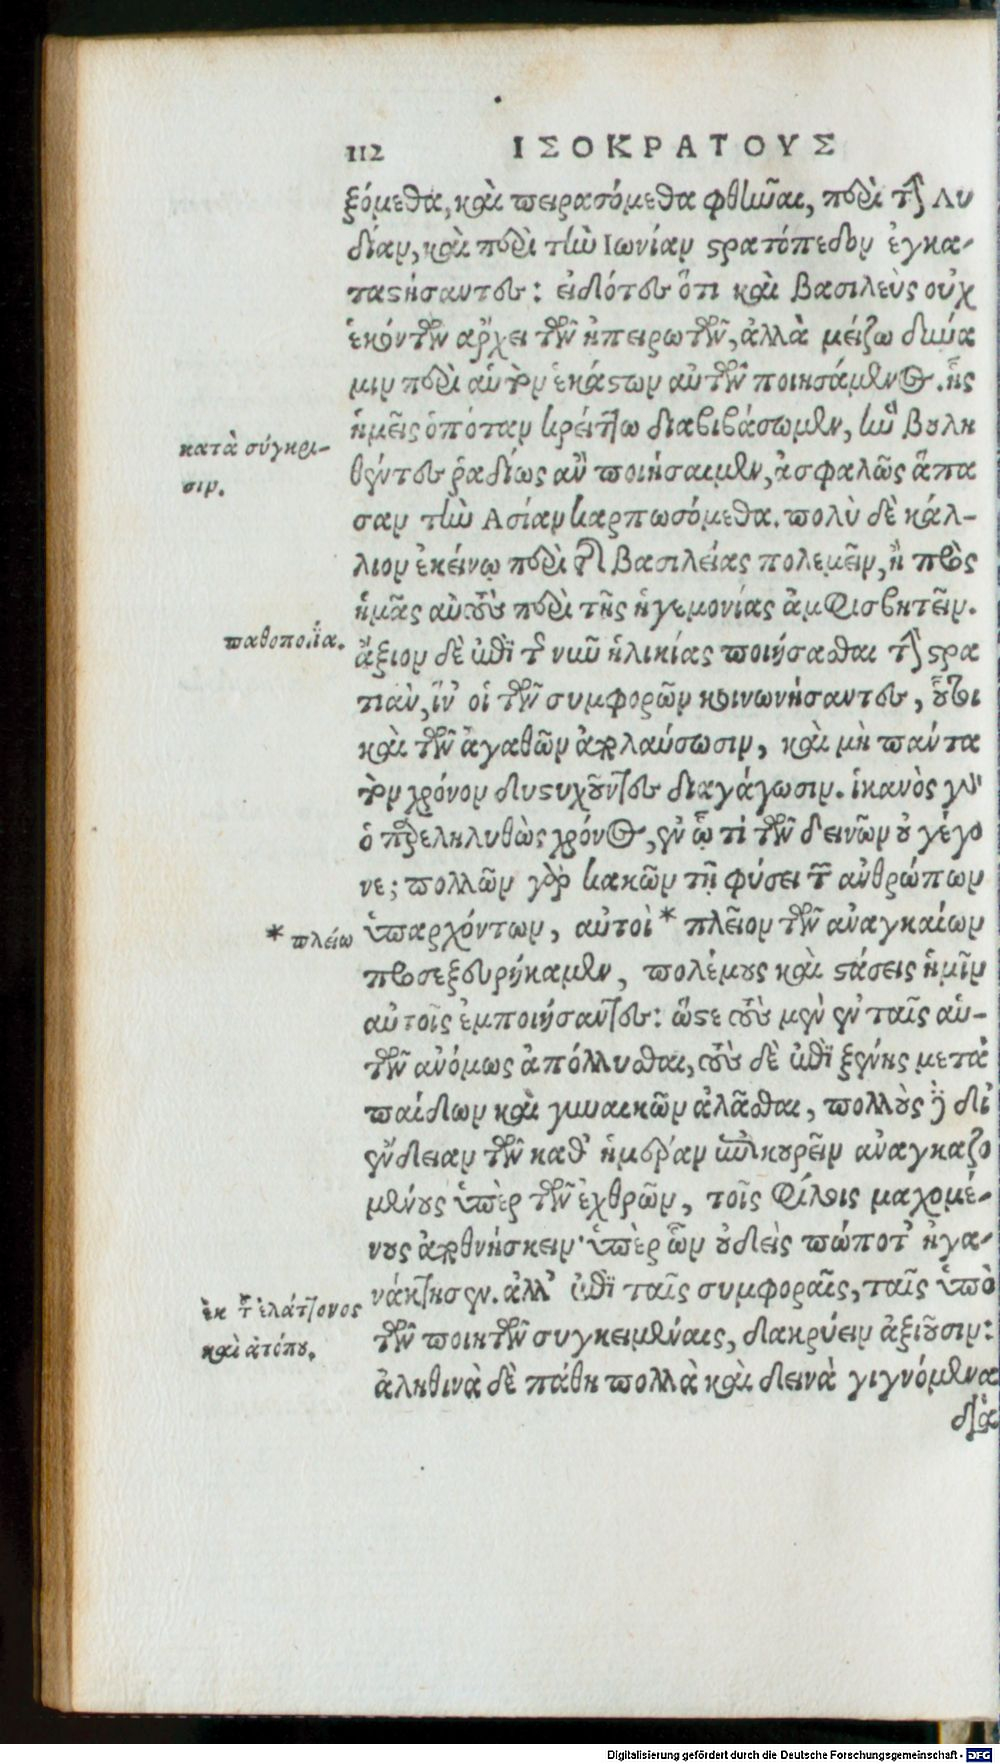 112 ΙΣΟΚΡΑΤΟΥΣ
ξόμεθα, καὶ πειρασόμεθα φθῆναι, περὶ τὴν Λυ
δίαν, καὶ περὶ τὴν Ιωνίαν στρατόπεδον ἐγκα-
ταστήσαντες: εἰδότες ὅτι καὶ βασιλεὺς οὐχ
ἑκόντων ἄρχει τῶν ἠπειρωτῶν, ἀλλὰ μείζω δύνα
μιν περὶ αὑτὸν ἑκάστων αὐτῶν ποιησάμενος. ἧς
ἡμεῖς ὁπόταν κρείττω διαβιβάσωμεν, ὃ βουλη
θέντες ῥᾳδίως ἂν ποιήσαιμεν, ἀσφαλῶς ἅπα
σαν τὴν Ασίαν καρπωσόμεθα. πολὺ δὲ κάλ-
λιον ἐκείνῳ περὶ τῆς βασιλείας πολεμεῖν, ἢ πρὸς
ἡμᾶς αὐτοὺς περὶ τῆς ἡγεμονίας ἀμφισβητεῖν.
ἄξιον δὲ ἐπὶ τῆς νῦν ἡλικίας ποιήσασθαι τὴν στρα
τιὰν, ἵν' οἱ τῶν συμφορῶν κοινωνήσαντες, οὗτοι
καὶ τῶν ἀγαθῶν ἀπολαύσωσιν, καὶ μὴ πάντα
τὸν χρόνον δυστυχοῦντες διαγάγωσιν. ἱκανὸς γὰρ
ὁ παρεληλυθὼς χρόνος, ἐν ᾧ τί τῶν δεινῶν οὐ γέγο
νε; πολλῶν γὰρ κακῶν τῇ φύσει τῇ τῶν ἀνθρώπων
ὑπαρχόντων, αὐτοὶ * πλεῖον τῶν ἀναγκαίων
προσεξευρήκαμεν, πολέμους καὶ στάσεις ἡμῖν
αὐτοῖς ἐμποιήσαντες: ὥστε τοὺς μὲν ἐν ταῖς αὑ-
τῶν ἀνόμως ἀπόλλυσθαι, τοὺς δὲ ἐπὶ ξένης μετὰ
παίδων καὶ γυναικῶν ἀλᾶσθαι, πολλοὺς δὲ δι'
ἔνδειαν τῶν καθ' ἡμέραν ἐπικουρεῖν ἀναγκαζο
μένους ὑπὲρ τῶν ἐχθρῶν, τοῖς φίλοις μαχομέ-
νους ἀποθνήσκειν· ὑπὲρ ὧν οὐδεὶς πώποτ' ἠγα-
νάκτησεν. ἀλλ' ἐπὶ ταῖς συμφοραῖς, ταῖς ὑπὸ
τῶν ποιητῶν συγκειμέναις, δακρύειν ἀξιοῦσιν:
ἀληθινὰ δὲ πάθη πολλὰ καὶ δεινὰ γιγνόμενα
διὰ
κατὰ σύγκρι-
σιν.
παθοποιΐα.
* πλείω
ἐκ τοῦ ἐλάττονος
καὶ ἀτόπου.
Digitalisierung gefördert durch die Deutsche Forschungsgemeinschaft - DFG